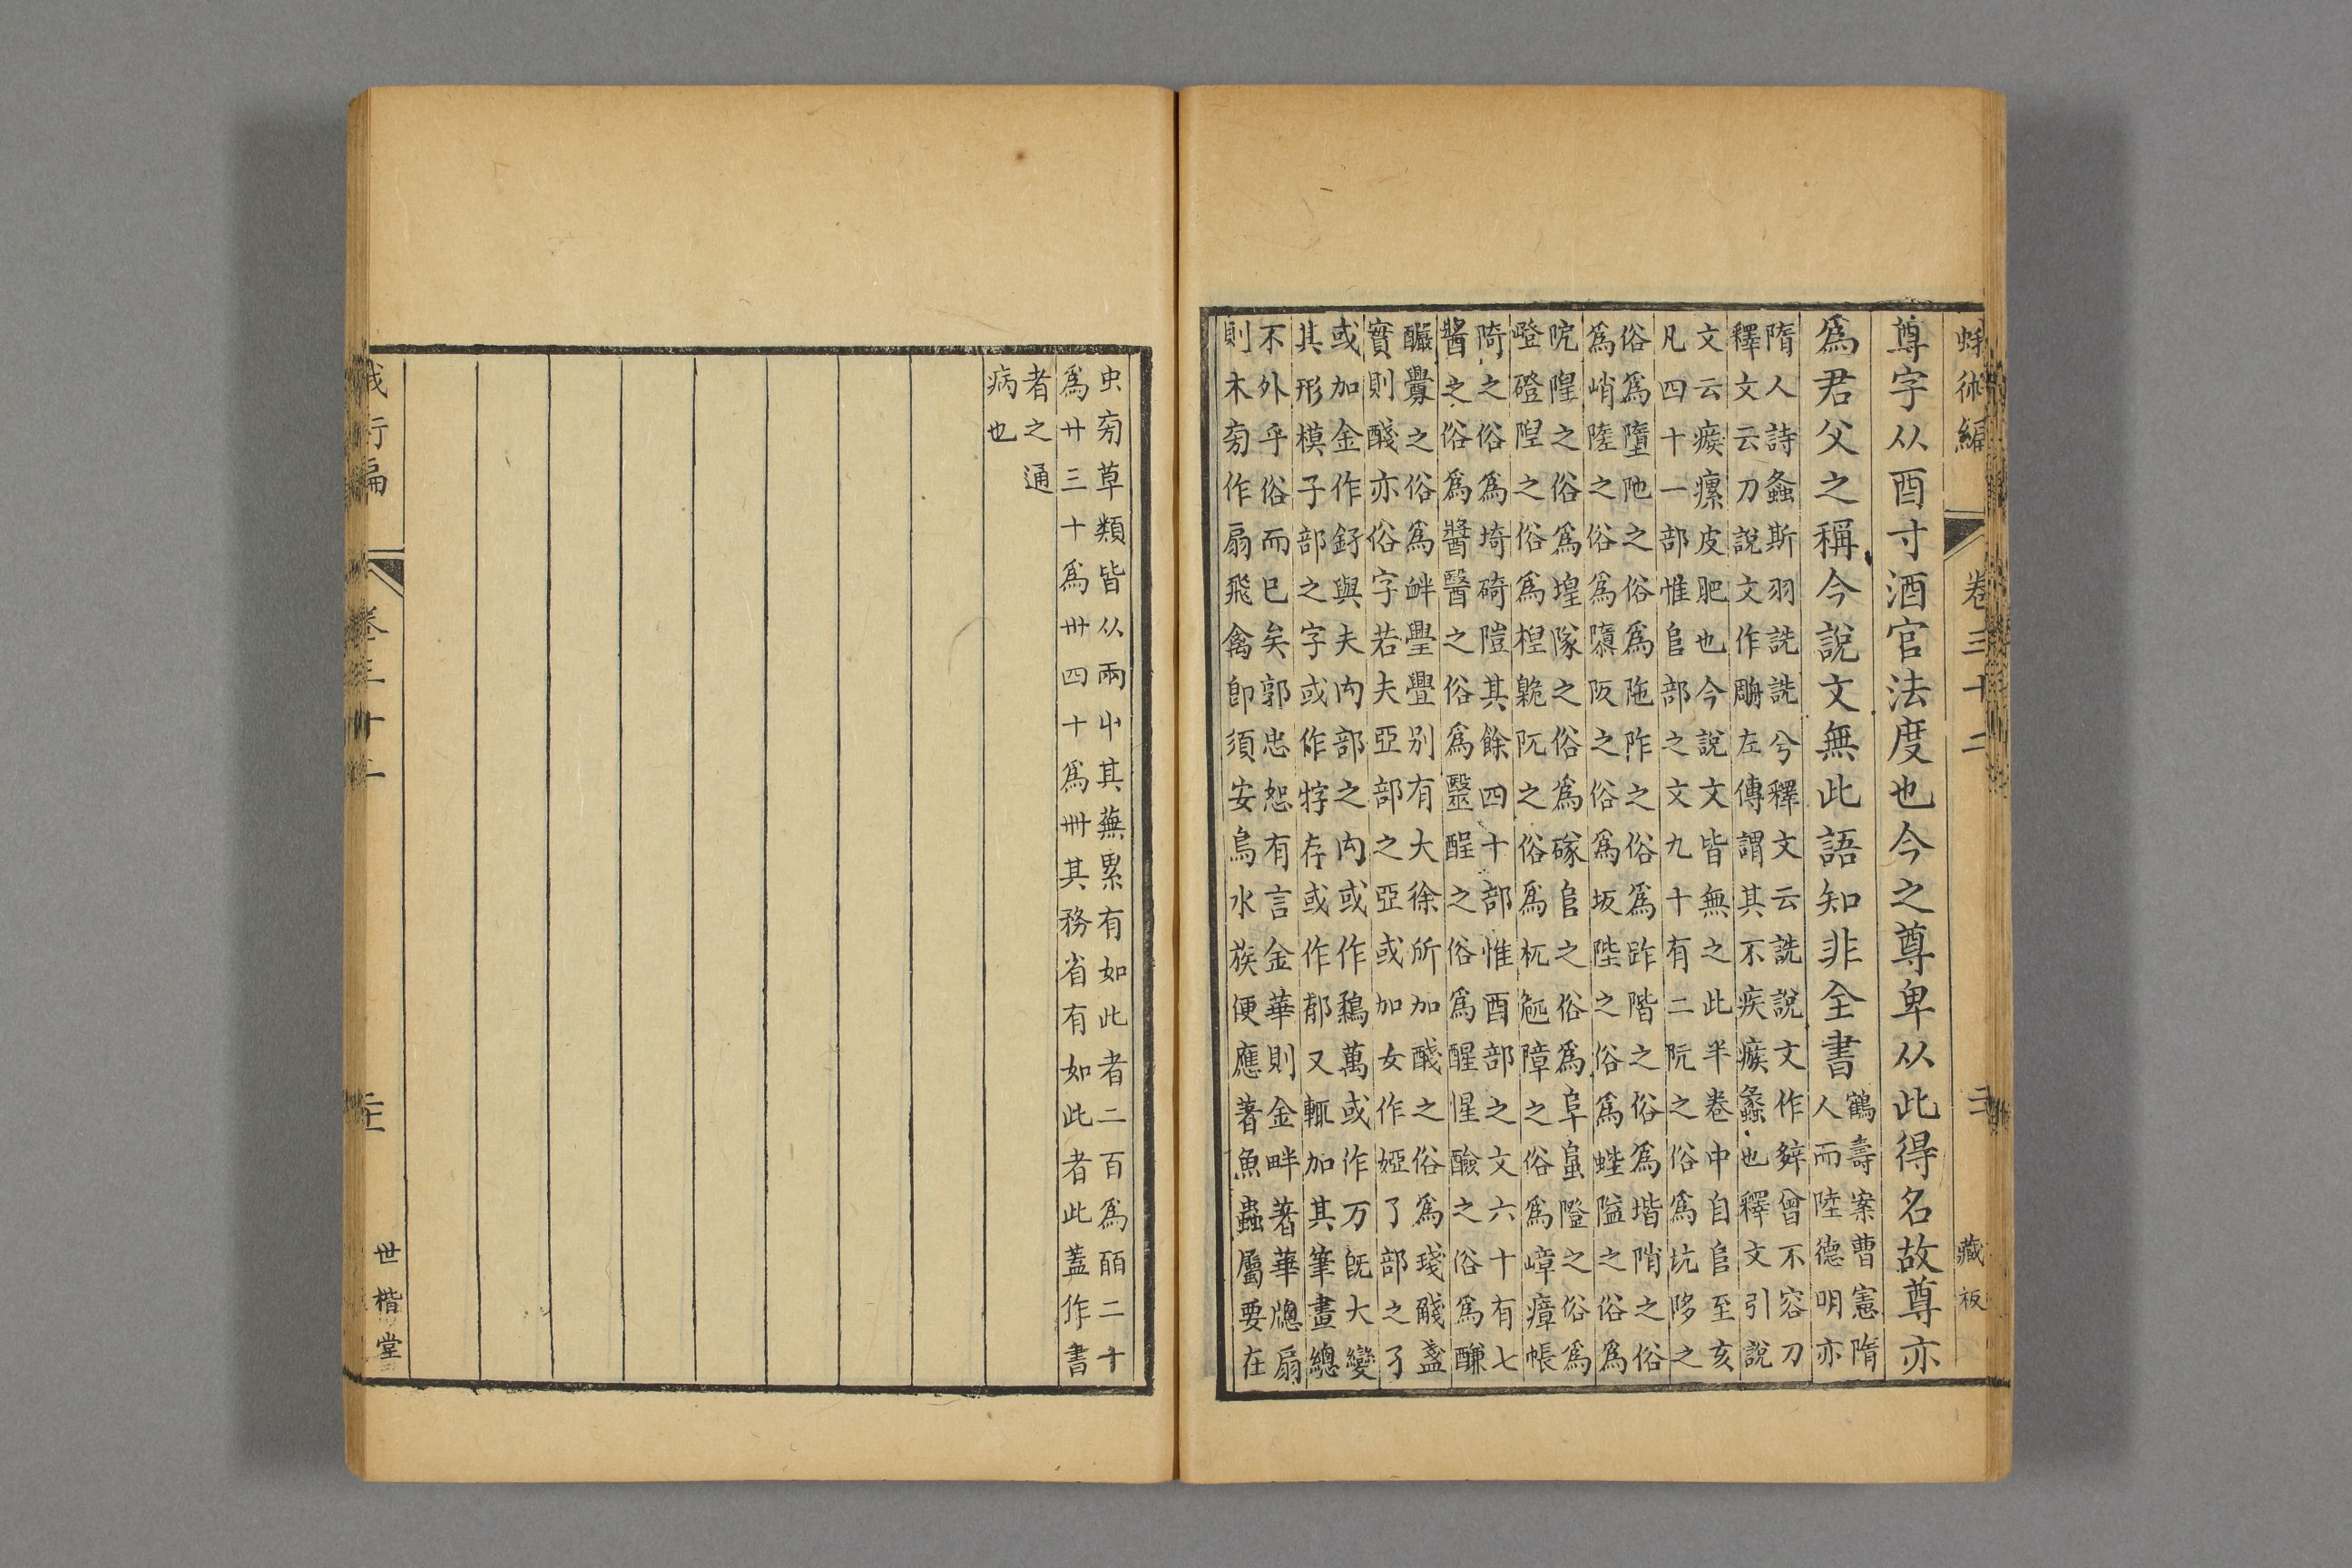 蛾術編 卷三十二 二 藏板
尊字从酉寸酒官法度也今之尊卑从此得名故尊亦
爲君父之稱今說文無此語知非全書
鶴壽案曹憲隋
人而陸德明亦
隋人詩螽斯羽詵詵兮釋文云詵說文作𨐔曾不容刀
釋文云刀說文作𦨣左傳謂其不疾瘯蠡也釋文引說
文云瘯瘰皮肥也今說文皆無之此半卷中自𨸏至亥
凡四十一部惟𨸏部之文九十有二阮之俗爲坑陊之
俗爲墮阤之俗爲陁阼之俗爲𨀥階之俗爲堦陗之俗
爲峭陸之俗爲隳阪之俗爲坂陛之俗爲蜌隘之俗爲
隍之俗爲堭隊之俗爲磜𨸏之俗爲阜䖵隥之俗爲
嶝磴隉之俗爲㮟臲阢之俗爲杌卼障之俗爲嶂瘴帳
陭之俗爲埼碕隑其餘四十部惟酉部之文六十有七
醬之俗爲醬醫之俗爲毉酲之俗爲醒惺醶之俗爲醶
釃釁之俗爲衅舋亹別有大徐所加醆之俗爲琖䤔盞
實則醆亦俗字若夫亞部之亞或加女作婭了部之了
或加金作釨與夫禸部之禸或作鶈萬或作万旣大變
其形模子部之字或作牸存或作郁又輒加其筆畫總
不外乎俗而已矣郭忠恕有言金華則金畔著華牕扇
則木旁作扇飛禽卽須安鳥水族便應著魚蟲屬要在
虫旁草類皆从兩屮其蕪累有如此者二百爲皕二十
爲廿三十爲卅四十爲卌其務省有如此者此蓋作書
者之通
病也
蛾術編 卷三十二 世楷堂